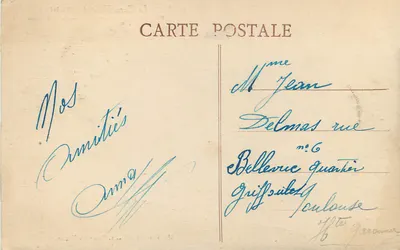 CARTE POSTALE
Nos
amitiés
Anna
Mme Jean
Delmas rue
n° 6
Bellevue quartier
Toulouse
Hte Garonne